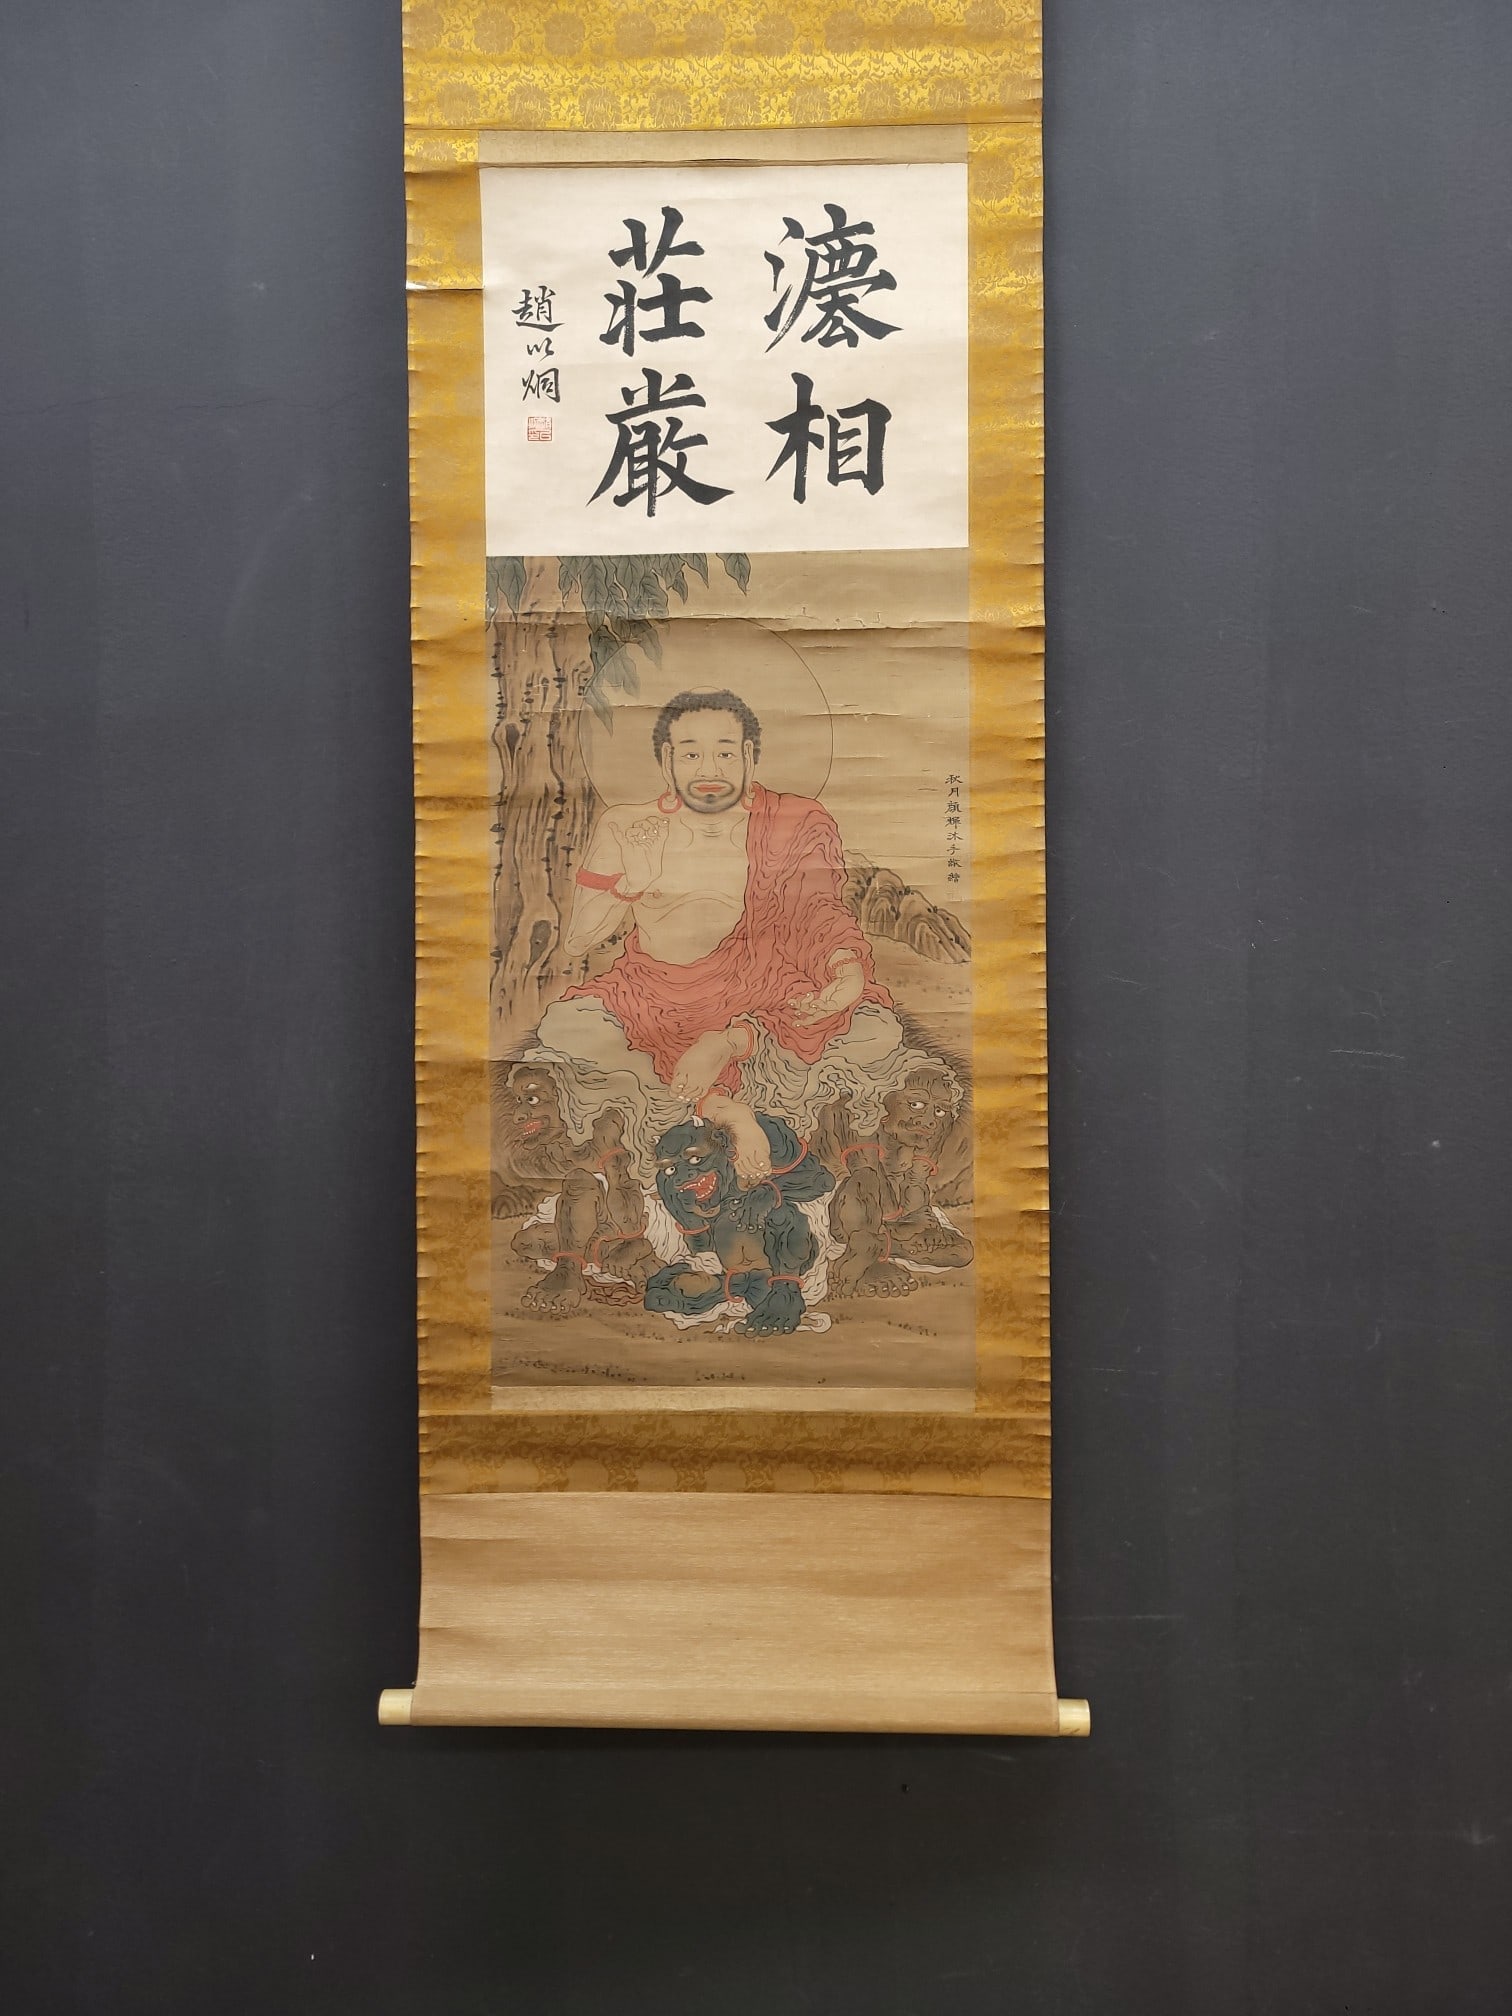 灋相
莊厳
趙以炯
秋月顔輝沐手敬繪